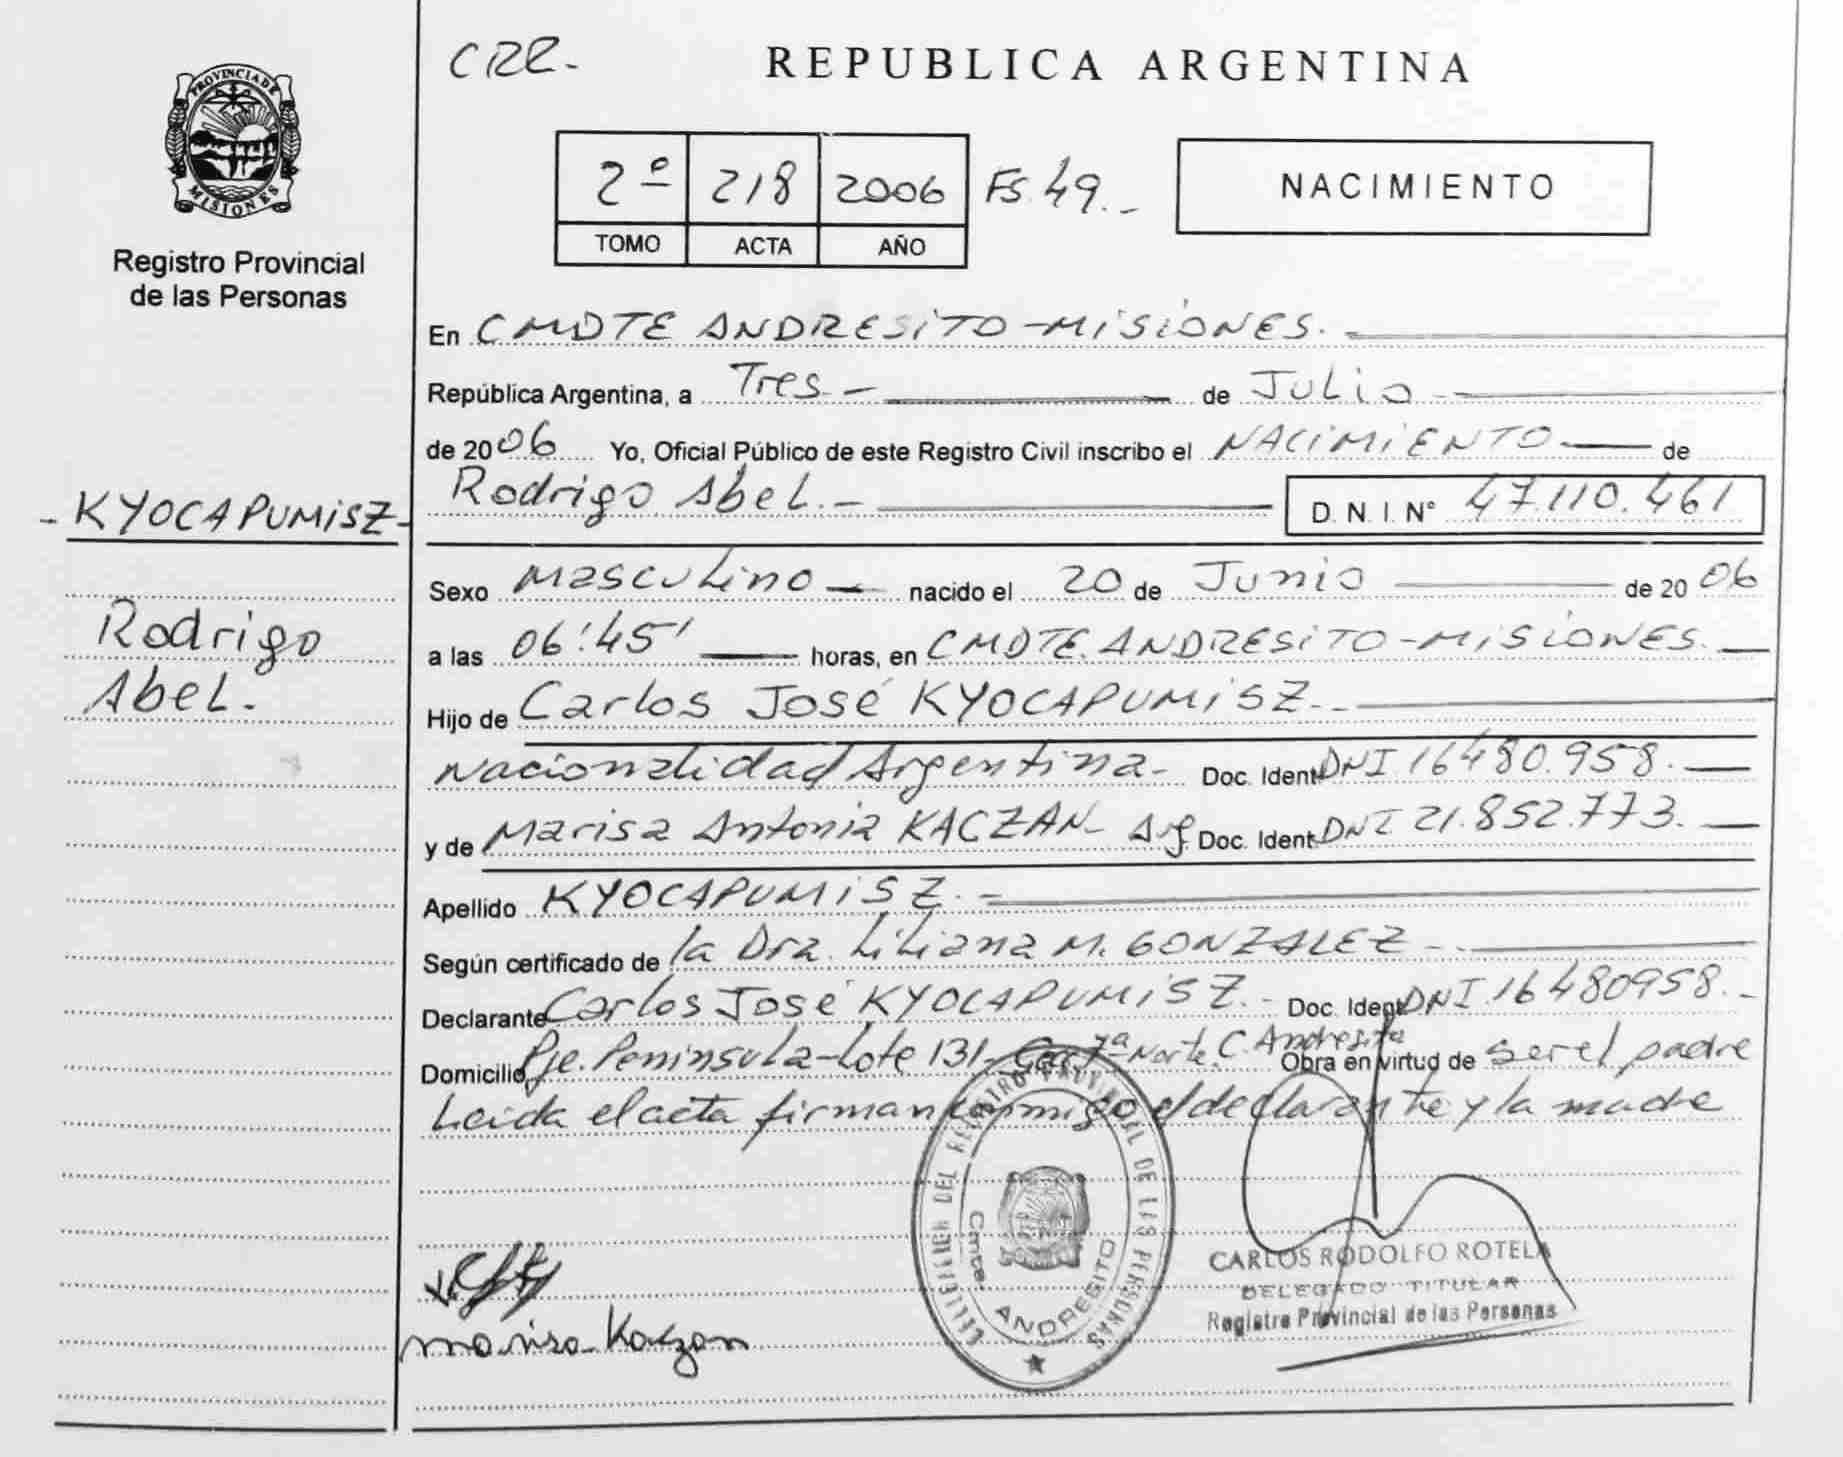 CRR-
REPUBLICA ARGENTINA
PROVINCIA DE
MISIONES
Registro Provincial
de las Personas
2º 218 2006 Fs. 49.-
TOMO ACTA AÑO
NACIMIENTO
En CMDTE ANDRESITO-MISIONES.
República Argentina, a Tres- de Julio
de 2006 Yo, Oficial Público de este Registro Civil inscribo el NACIMIENTO de
-KYOCAPUMISZ-
Rodrigo Abel.- D. N. I. N° 47.110.461
Sexo Masculino nacido el 20 de Junio de 2006
Rodrigo
Abel.
a las 06'.45' horas, en CMDTE. ANDRESITO-MISIONES.
Hijo de Carlos José KYOCAPUMISZ.-
Nacionalidad Argentina- Doc. Ident DNI 16480.958.
y de Marisa Antonia KACZAN- Arg Doc. Ident DNI 21.852.773.
Apellido KYOCAPUMISZ.-
Según certificado de la Dra. Liliana M. GONZALEZ-
Declarante Carlos José KYOCAPUMISZ.- Doc. Ident DNI 16480958.-
Domicilio Pje. Peninsula-Lote 131- 7ª Norte. C. Andresito Obra en virtud de ser el padre
Leida el acta firman conmigo el declarante y la madre
DEL REGISTRO PROVINCIAL DE LAS PERSONAS
Cmte. ANDRESITO
CARLOS RODOLFO ROTELA
DELEGADO TITULAR
Registro Provincial de las Personas
marisa Kaczan